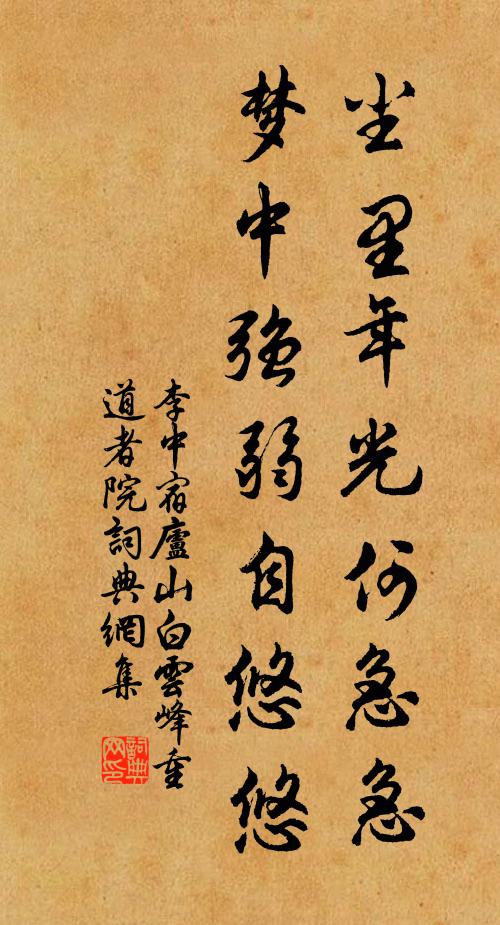 尘里年光何急急
梦中强弱自悠悠
李中宿廬山白雲峰重
道者院詞典網集
詞典
网印